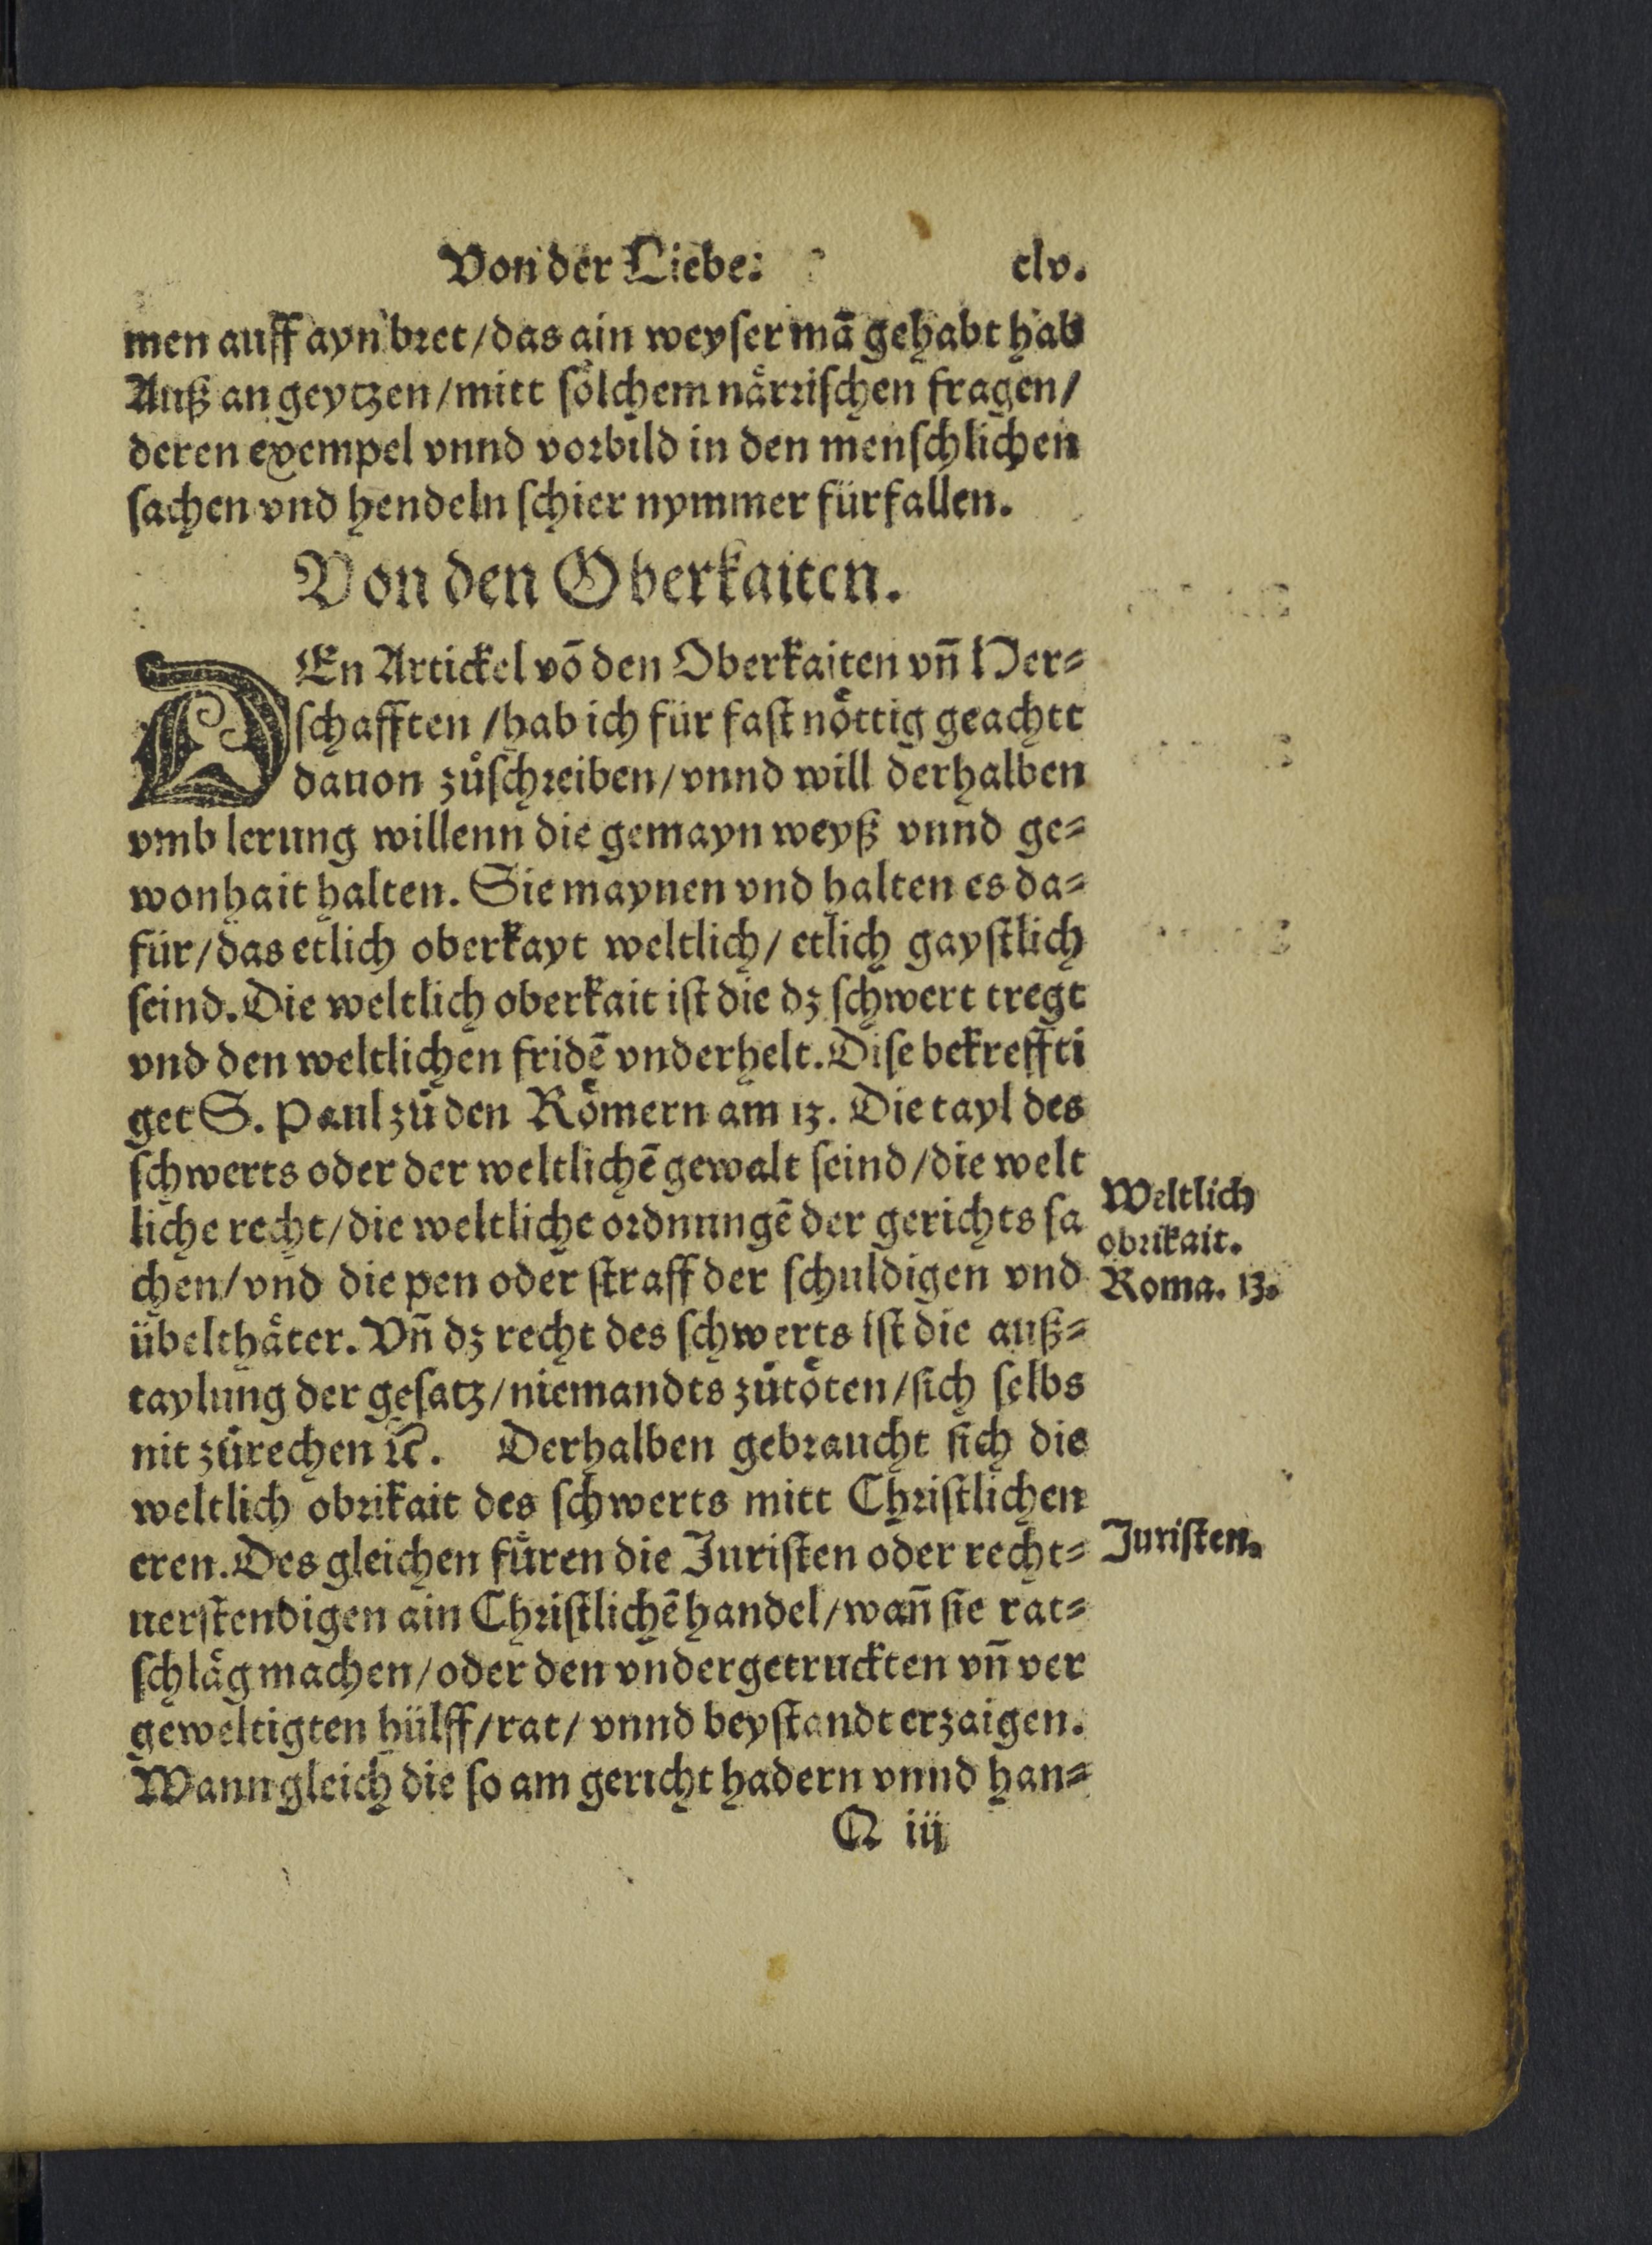 Von der Liebe: clv.
men auff ayn bret/das ain weyſer mā gehabt hab
Auß an geytzen/mitt ſoͤlchem naͤrriſchen fragen/
deren exempel vnnd vorbild in den menſchlichen
ſachen vnd hendeln ſchier nymmer fürfallen.
Von den Oberkaiten.
DEn Artickel vō den Oberkaiten vn̄ Her⸗
ſchafften /hab ich für faſt noͤttig geachtt
dauon zůſchreiben/vnnd will derhalben
vmb lerung willenn die gemayn weyß vnnd ge⸗
wonhait halten. Sie maynen vnd halten es da⸗
für/das etlich oberkayt weltlich/ etlich gayſtlich
ſeind. Die weltlich oberkait iſt die dz ſchwert tregt
vnd den weltlichen fridē vnderhelt. Diſe bekreffti
get S. Paul zů den Roͤmern am 13. Die tayl des
ſchwerts oder der weltlichē gewalt ſeind/die welt
liche recht/die weltliche ordnungē der gerichts ſa
chen/vnd die pen oder ſtraff der ſchuldigen vnd
Weltlich
obrikait.
Roma. 13.
übelthaͤter. Vn̄ dz recht des ſchwerts iſt die auß⸗
taylung der geſatz/niemandts zůtoͤten/ſich ſelbs
nit zůrechen ꝛc̄. Derhalben gebraucht ſich die
weltlich obrikait des ſchwerts mitt Chriſtlichen
eren. Des gleichen fuͤren die Juriſten oder recht⸗
Juriſten.
uerſtendigen ain Chriſtlichē handel/wan̄ ſie rat⸗
ſchlaͤg machen/oder den vndergetruckten vn̄ ver
geweltigten hülff/rat/ vnnd beyſtandt erzaigen.
Wann gleich die ſo am gericht hadern vnnd han⸗
Q iij